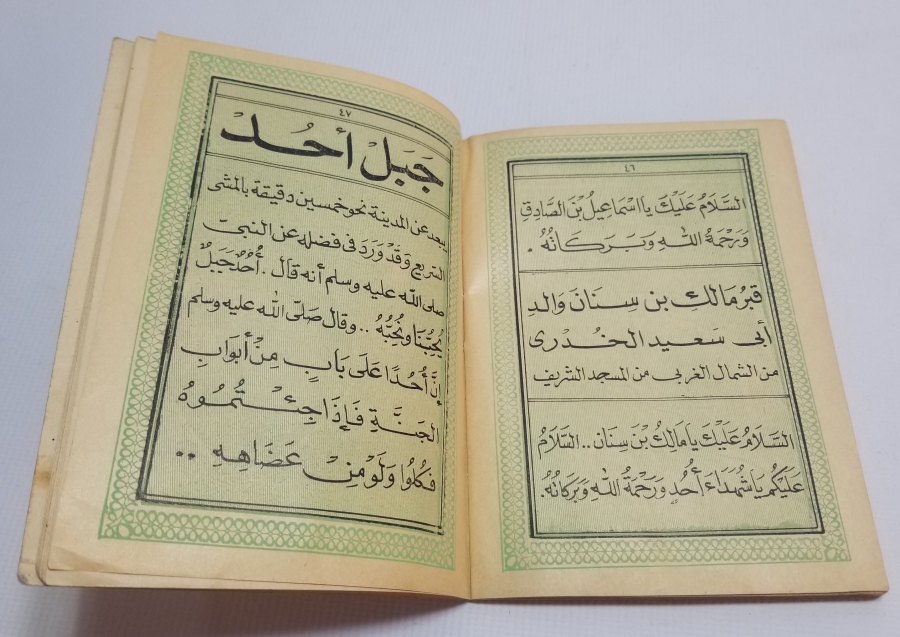 ٤٦
السَّلَامُ عَلَيْكَ يَا اسْمَاعِيلُ بْنَ الصَّادِقِ
وَرَحْمَةُ اللهِ وَبَرَكَاتُهُ .
قَبْرُ مَالِكِ بن سِنَان وَالِدِ
أَبي سَعيد الخُدْرى
من الشمال الغربي من المسجد الشريف
السَّلَامُ عَلَيْكَ يَا مَالِكُ بْنَ سِنَان .. السَّلَامُ
عَلَيْكُم يَا شُهَدَاءَ أُحُدٍ وَرَحْمَةُ اللهِ وَبَرَكَاتُهُ .
٤٧
جَبَلْ أُحُدْ
يبعد عن المدينة نحو خمسين دقيقة بالمشى
السَّريع وَقَدْ وَرَدَ فى فضله عن النبىّ
صلى الله عليه وسلم أنه قال . أُحُدٌ جَبَلٌ
يُحِبُّنَا وَنُحِبُّهُ .. وقال صَلّى الله عليه وسلم
إِنَّ أُحُدًا عَلَى بَابٍ مِنْ أَبوَابِ
الجَنَّةِ فَإِذَا جِئْتُمُوهُ
فَكُلُوا وَلَوْ مِنْ عَضَاهِهِ ..